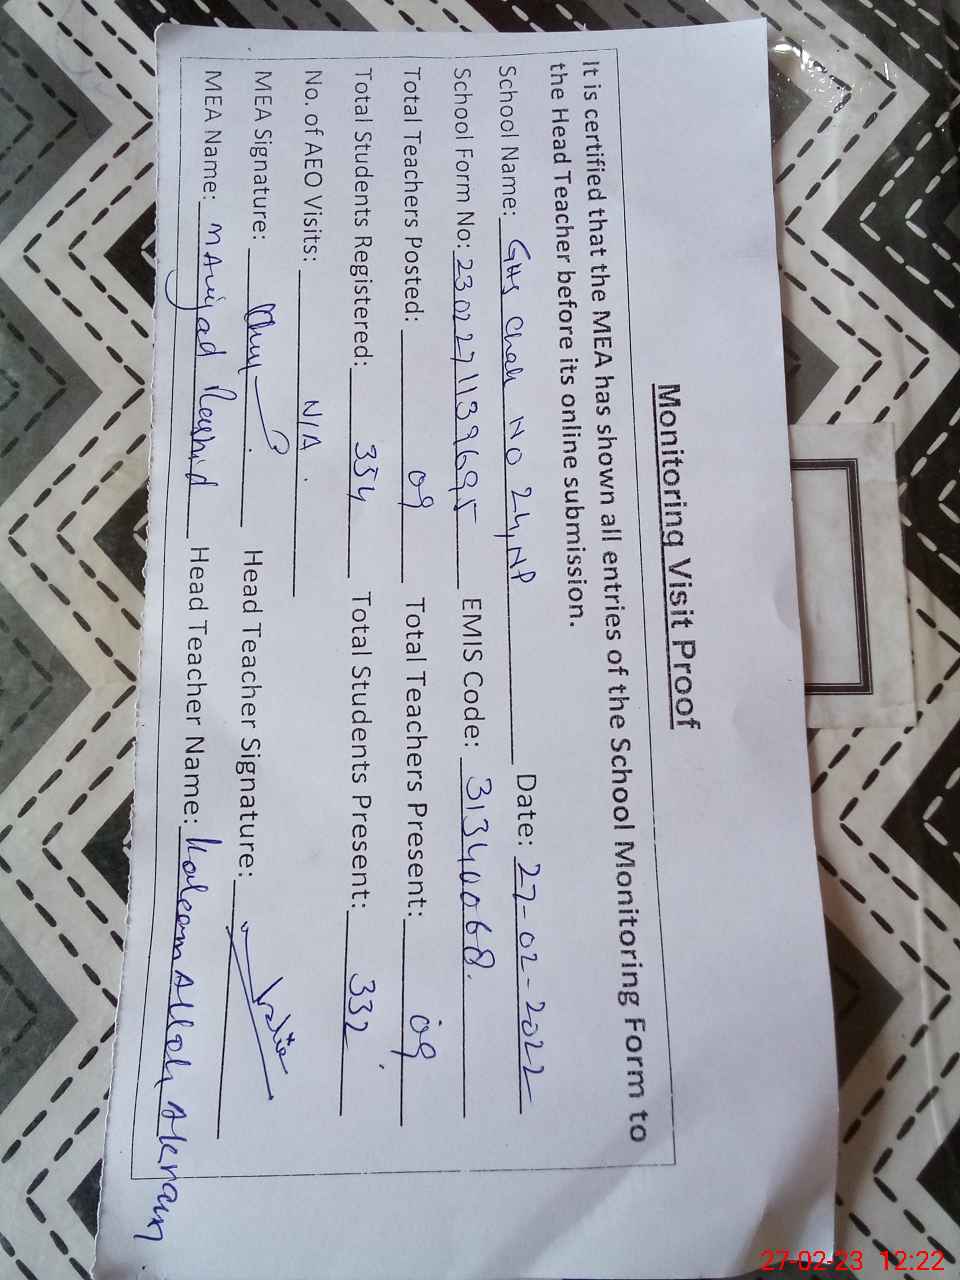 Monitoring Visit Proof
It is certified that the MEA has shown all entries of the School Monitoring Form to
the Head Teacher before its online submission.
School Name: GHS Chak No 24,NP Date: 27-02-2022
School Form No: 2302271139695 EMIS Code: 31340068.
Total Teachers Posted: 09 Total Teachers Present: 09
Total Students Registered: 354 Total Students Present: 332
No. of AEO Visits: N/A.
MEA Signature: Head Teacher Signature:
MEA Name: M Amjad Rashid Head Teacher Name: Kaleem Allah Akram
27-02-23 12:22